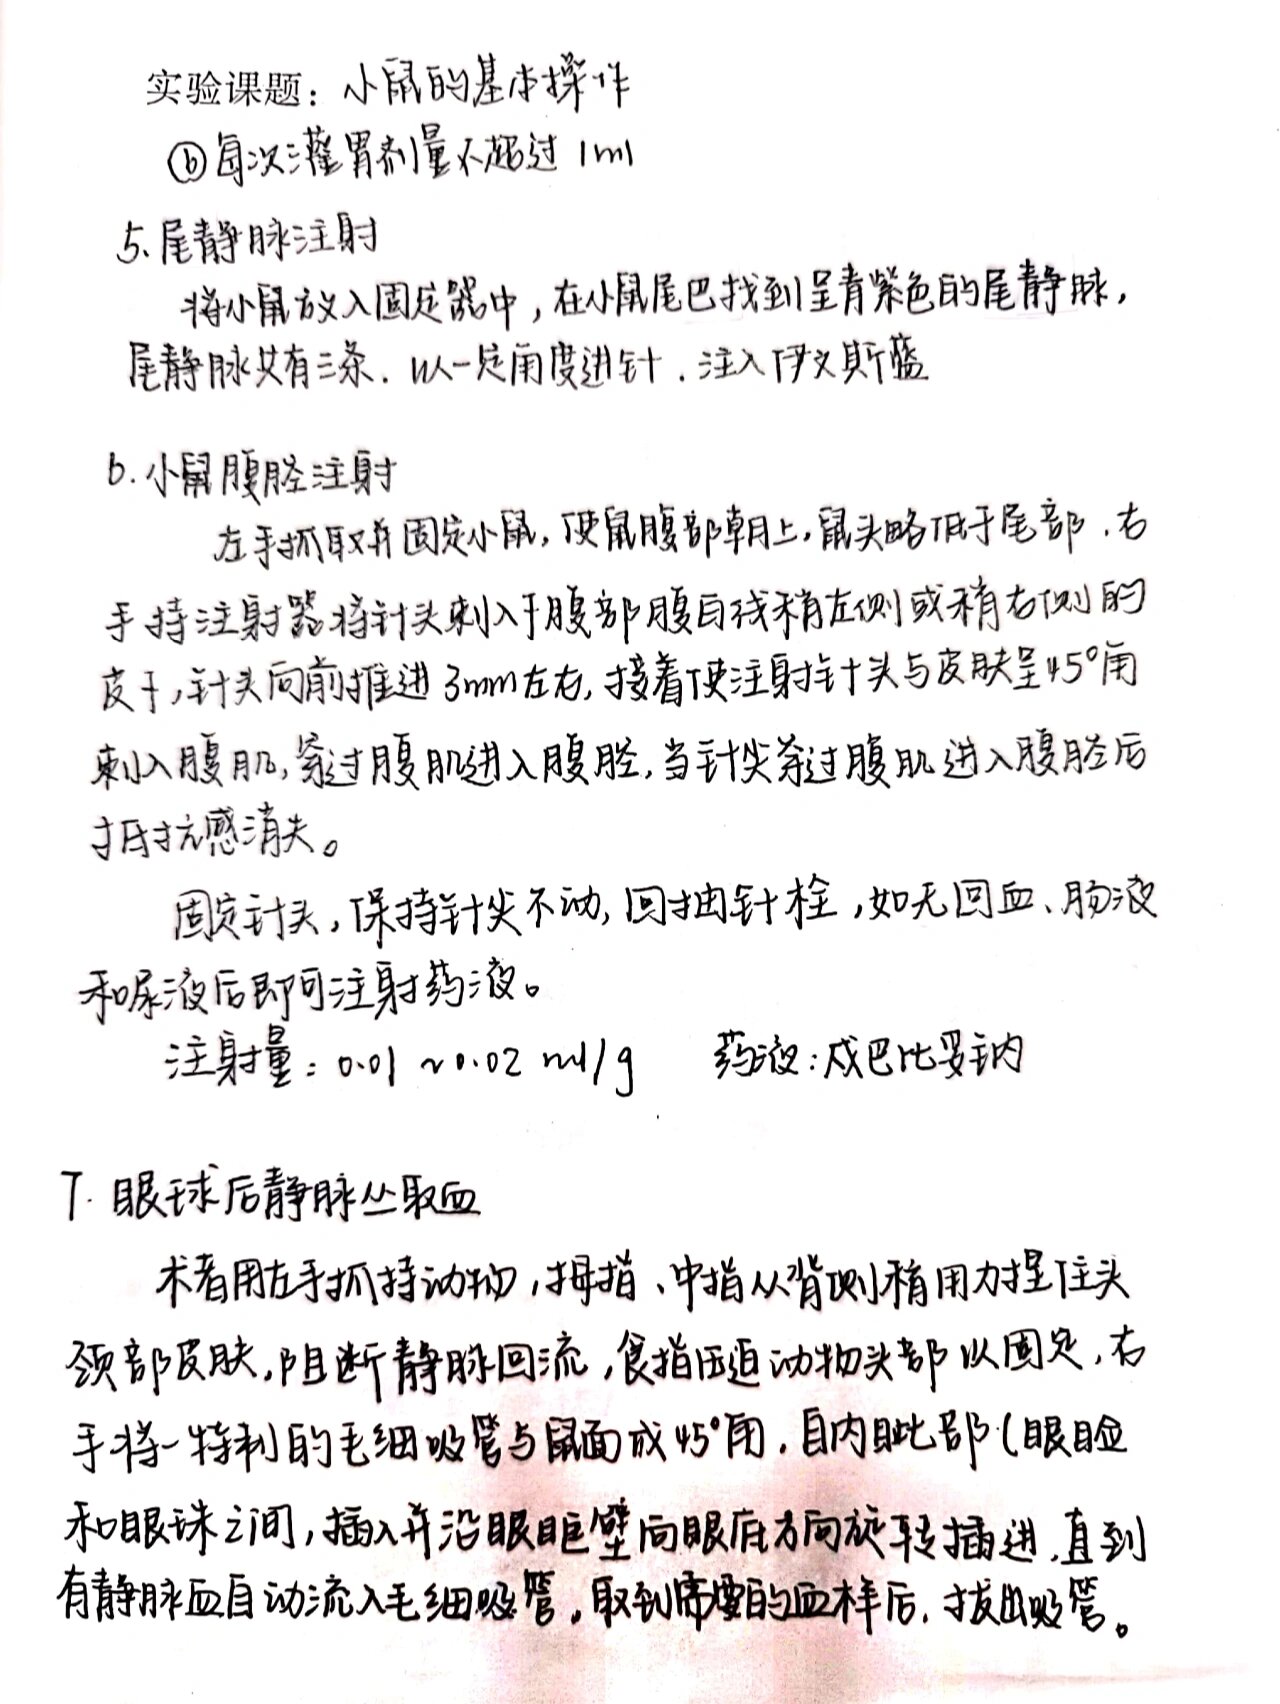 实验课题：小鼠的基本操作
ⓑ每次灌胃剂量不超过 1ml
5. 尾静脉注射
将小鼠放入固定器中，在小鼠尾巴找到呈青紫色的尾静脉，
尾静脉共有三条．以一定角度进针．注入伊文斯蓝
6. 小鼠腹腔注射
左手抓取并固定小鼠，使鼠腹部朝上，鼠头略低于尾部．右
手持注射器将针头刺入于腹部腹白线稍左侧或稍右侧的
皮下，针头向前推进3mm左右，接着使注射针头与皮肤呈45°角
刺入腹肌，穿过腹肌进入腹腔，当针尖穿过腹肌进入腹腔后
抵抗感消失。
固定针头，保持针尖不动，回抽针栓，如无回血、肠液
和尿液后即可注射药液。
注射量：0.01 ~0.02 ml/g 药液：戊巴比妥钠
7. 眼球后静脉丛取血
术者用左手抓持动物，拇指、中指从背侧稍用力捏住头
颈部皮肤，阻断静脉回流，食指压迫动物头部以固定，右
手将一特制的毛细吸管与鼠面成45°角．自内眦部（眼睑
和眼球之间，插入并沿眼眶壁向眼底方向旋转插进，直到
有静脉血自动流入毛细吸管。取到需要的血样后．拔出吸管。